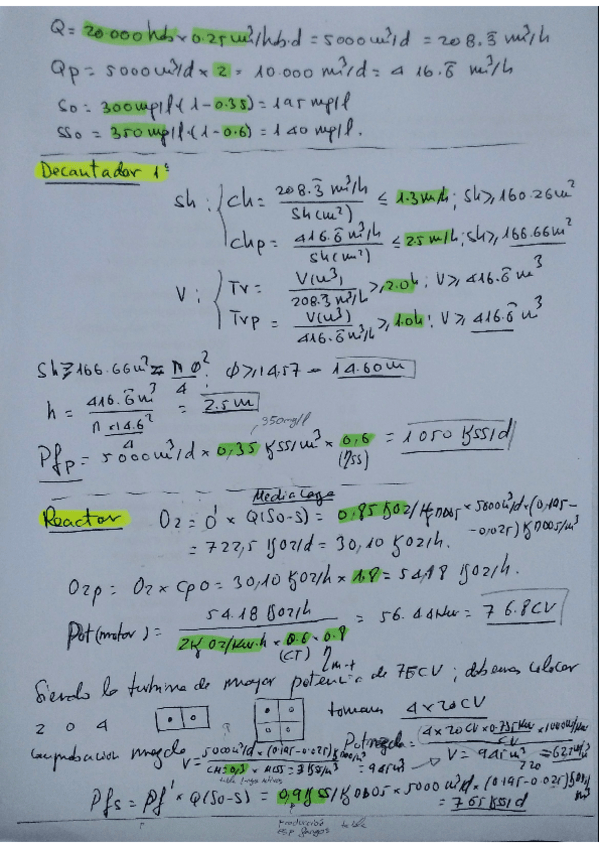 Q = 20.000 hab × 0.25 m³/hab.d = 5000 m³/d = 208.3 m³/h
Qp = 5000 m³/d × 2 = 10.000 m³/d = 416.6 m³/h
So = 300 mg/l · (1-0.35) = 195 mg/l
SSo = 350 mg/l · (1-0.6) = 140 mg/l.
Decantador 1º
Sh : Ch = 208.3 m³/h / Sh (m²) ≤ 1.3 m/h ; Sh ≥ 160.26 m²
Chp = 416.6 m³/h / Sh (m²) ≤ 2.5 m/h ; Sh ≥ 166.66 m²
V : Tr = V (m³) / 208.3 m³/h ≥ 2.0 h ; V ≥ 416.6 m³
Trp = V (m³) / 416.6 m³/h ≥ 1.0 h ; V ≥ 416.6 m³
Sh ≥ 166.66 m² = π Ø² / 4 ; Ø ≥ 14.57 = 14.60 m
h = 416.6 m³ / (π × 14.6² / 4) = 2.5 m
350 mg/l
Pfp = 5000 m³/d × 0,35 KSS/m³ × 0,6 = 1050 KSS/d
(ηss)
Media Carga
Reactor O2 = O' × Q(So-S) = 0,85 KgO2/KgDBO5 × 5000 m³/d × (0,195 -
- 0,025) KgDBO5/m³
= 722,5 KgO2/d = 30,10 KgO2/h.
O2p = O2 × CpO = 30,10 KgO2/h × 1.8 = 54,18 KgO2/h.
Pot (motor) = 54.18 KgO2/h / 2KgO2/Kw.h × 0.6 × 0.8 = 56.44 Kw = 76.8 CV
(CT) η m-t
Siendo la turbina de mayor potencia de 75 CV ; debemos colocar
2 o 4 tomamos 4 × 20 CV
Comprobación mezcla Pot mezcla = 4 × 20 CV × 0.735 Kw/CV × 1000 W/Kw
V = 5000 m³/d × (0.195-0.025) / CM = 0,3 × MLSS = 3 KSS/m³ = 945 m³ V = 945 m³
Pfs = Pf' × Q(So-S) = 0,9 KSS/KDBO5 × 5000 m³/d × (0.195-0.025) K/m³
= 765 KSS/d
Producción
fangos